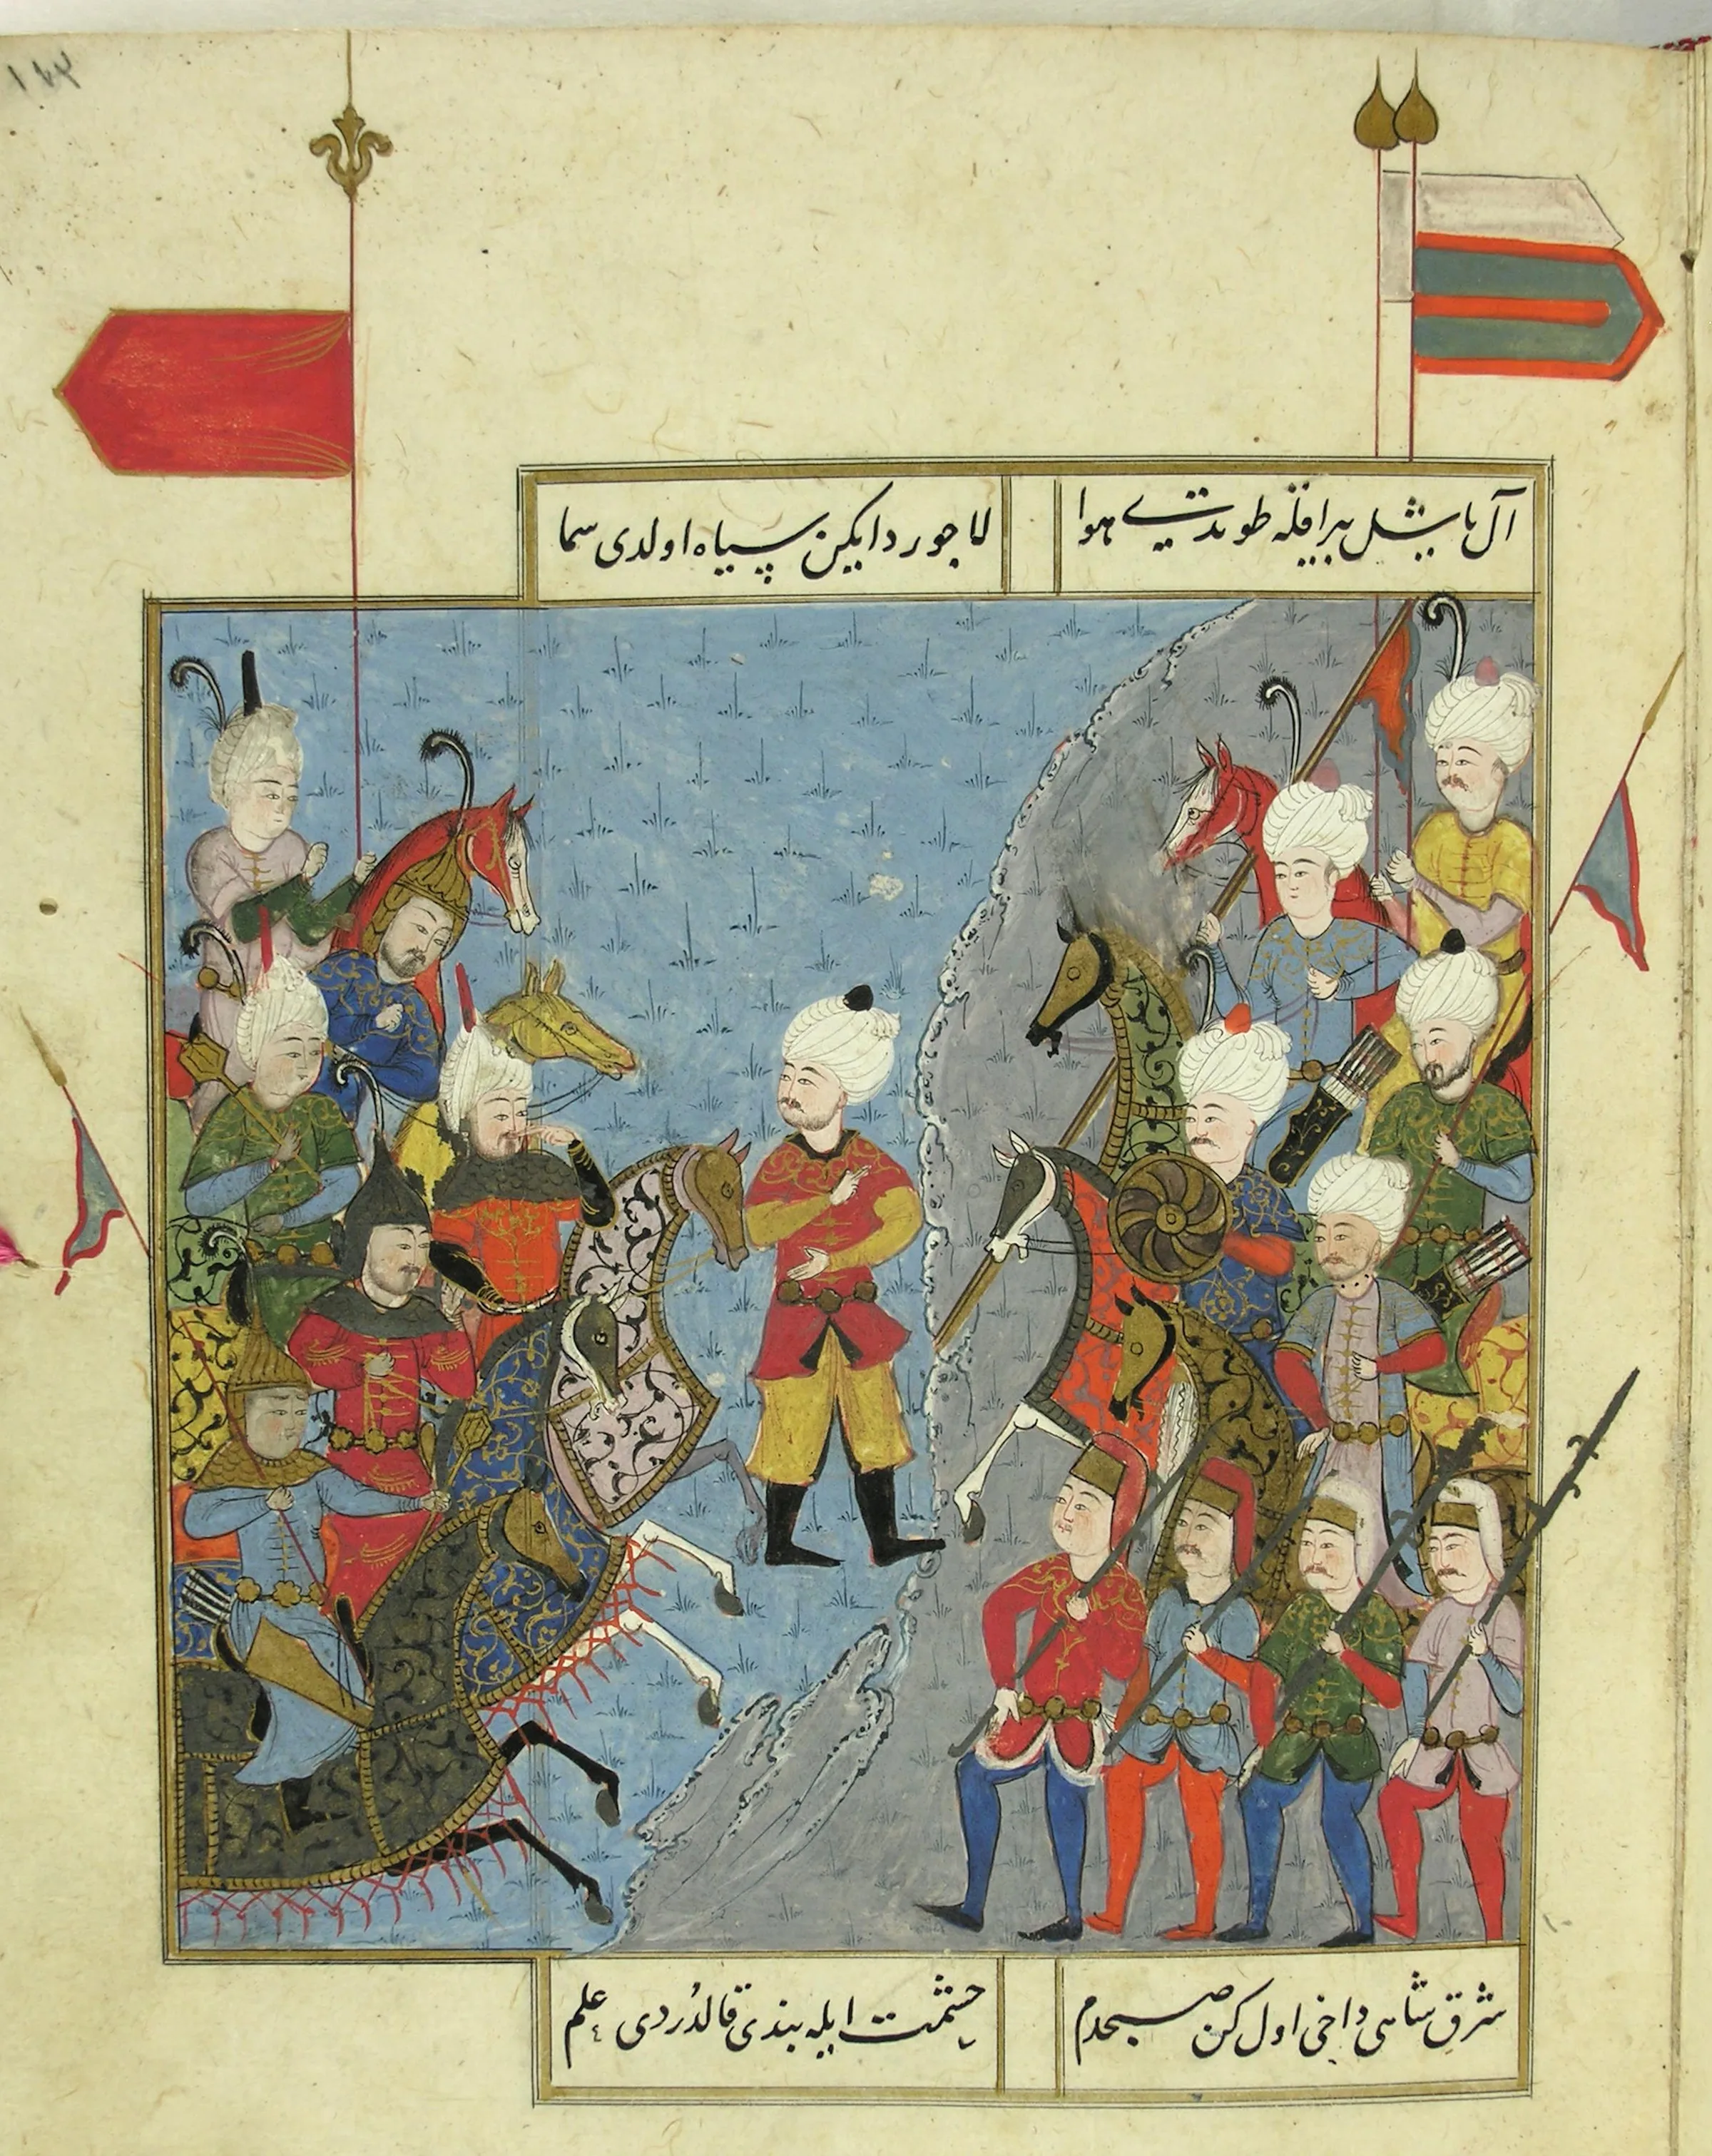 ١٤٣
آل یاشیل بیراقله طوندی هوا
لاجورد ایکن سیاه اولدی سما
شرق شاهی داخی اول کن صبحدم
حشمت ایله بندی قالدُردی علم